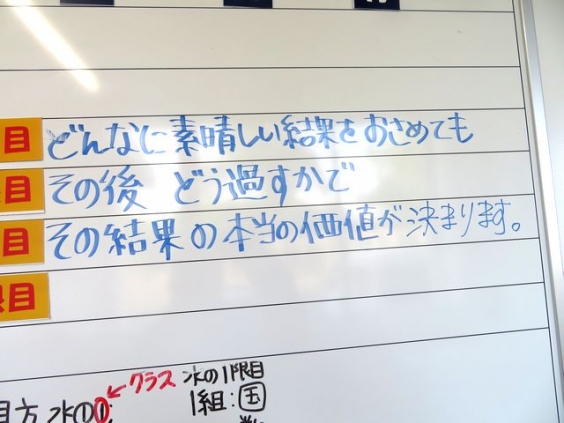 目 どんなに素晴しい結果をおさめても
目 その後 どう過すかで
目 その結果の本当の価値が決まります。
限目
←クラス 水の1限目
目方 水の①; 1組:国